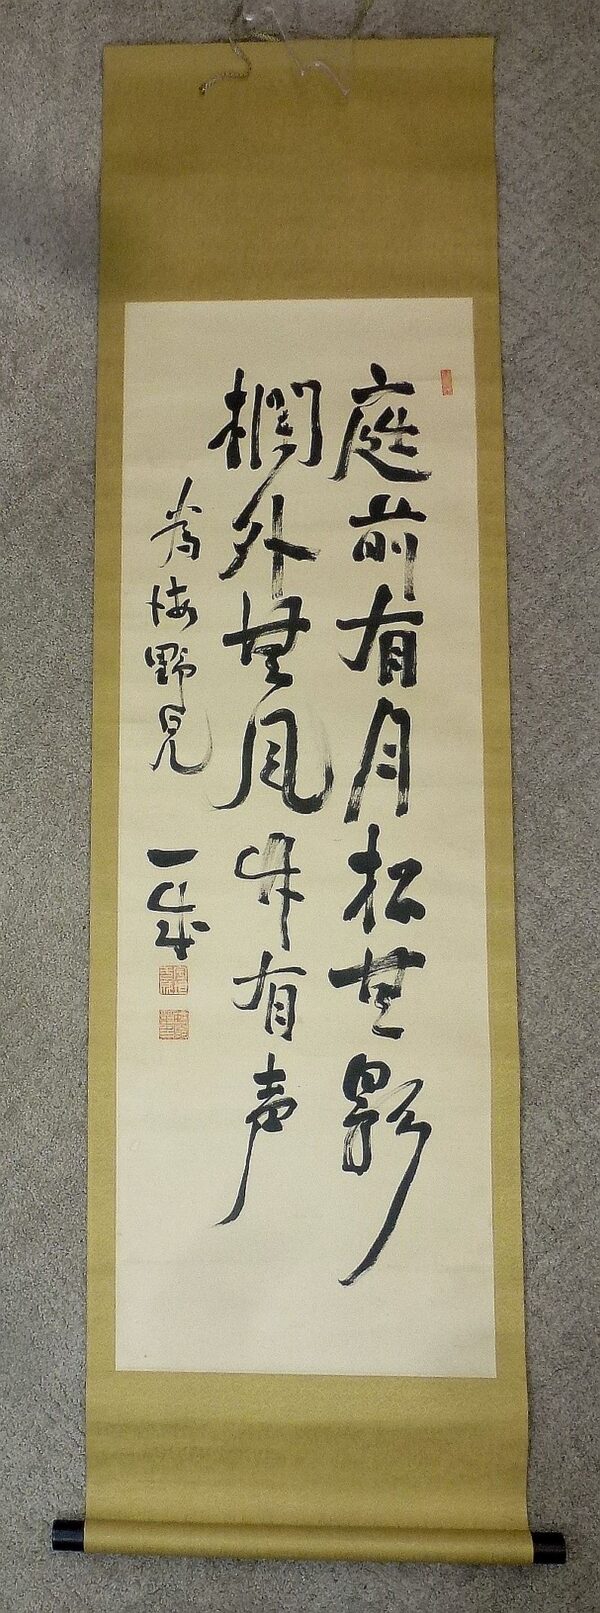 庭前有月松無影
欄外無風竹有声
為梅野兄